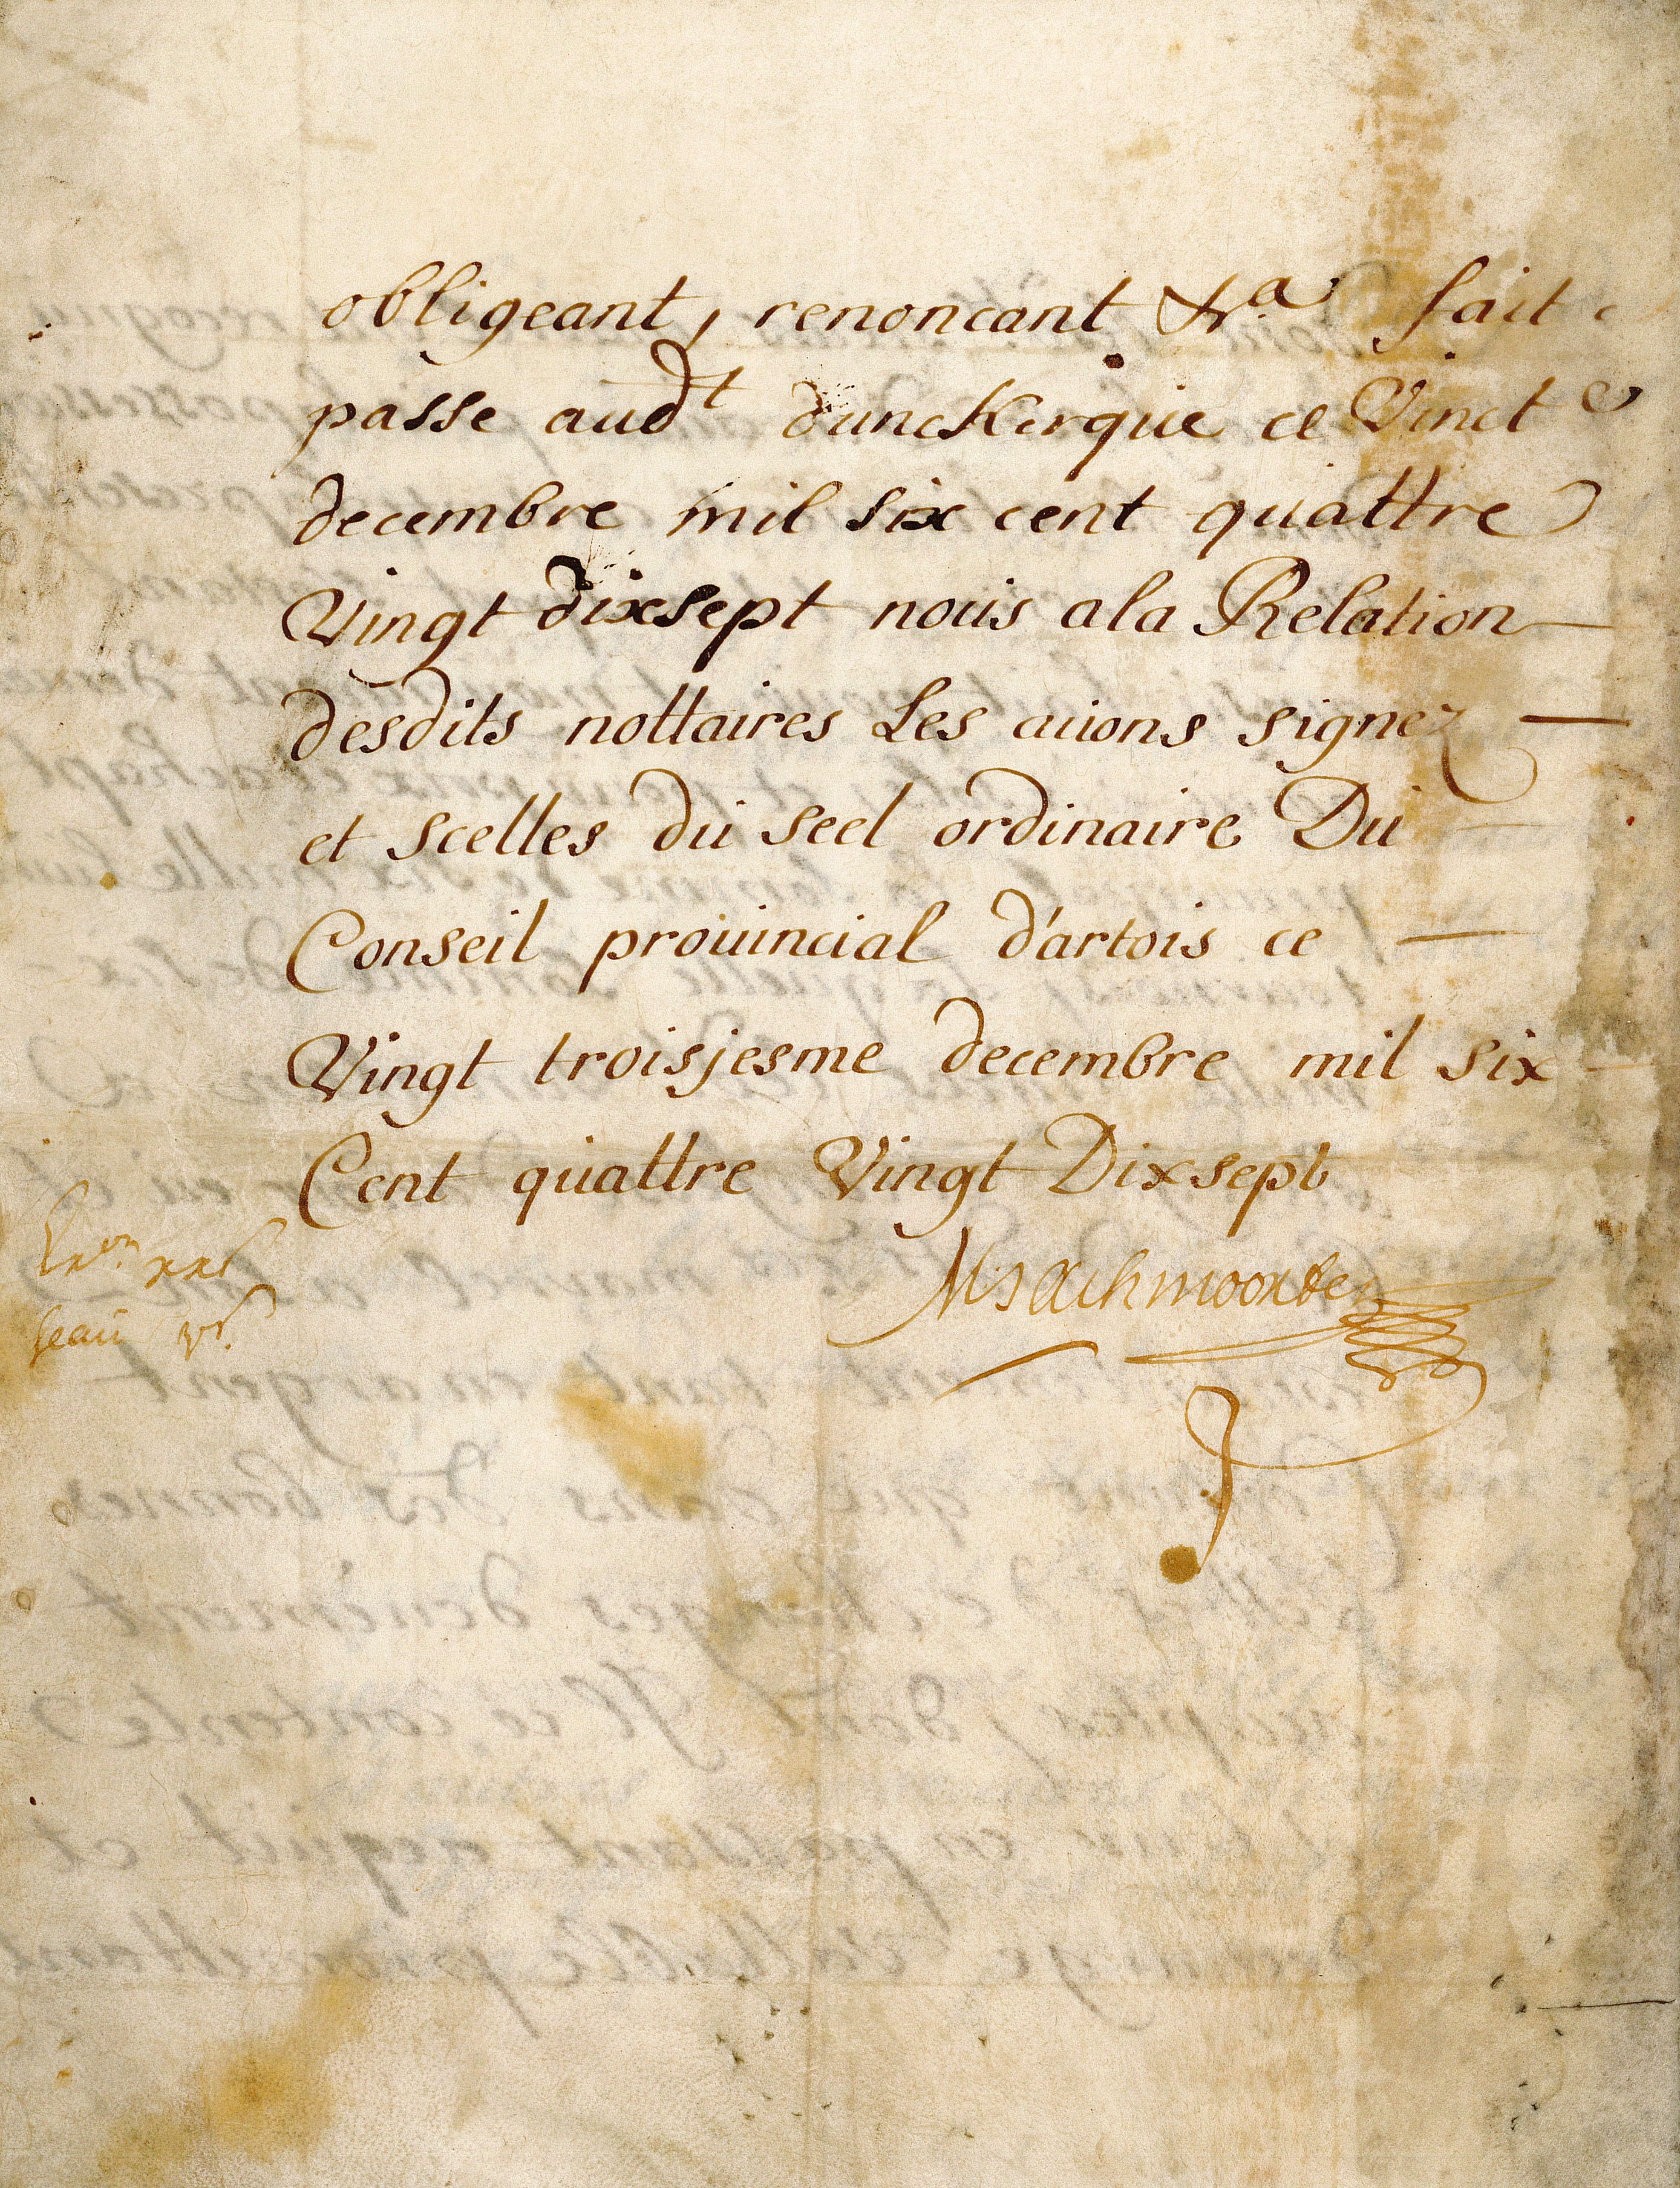 obligeant, renoncant &ra fait
passe audt dunckerque ce Vinct
decembre mil six cent quattre
Vingt dixsept nous ala Relation
desdits nottaires Les auons signez
et scelles du seel ordinaire Du
Conseil prouincial d'artois ce
Vingt troisjesme decembre mil six
Cent quattre Vingt Dixsept
seau